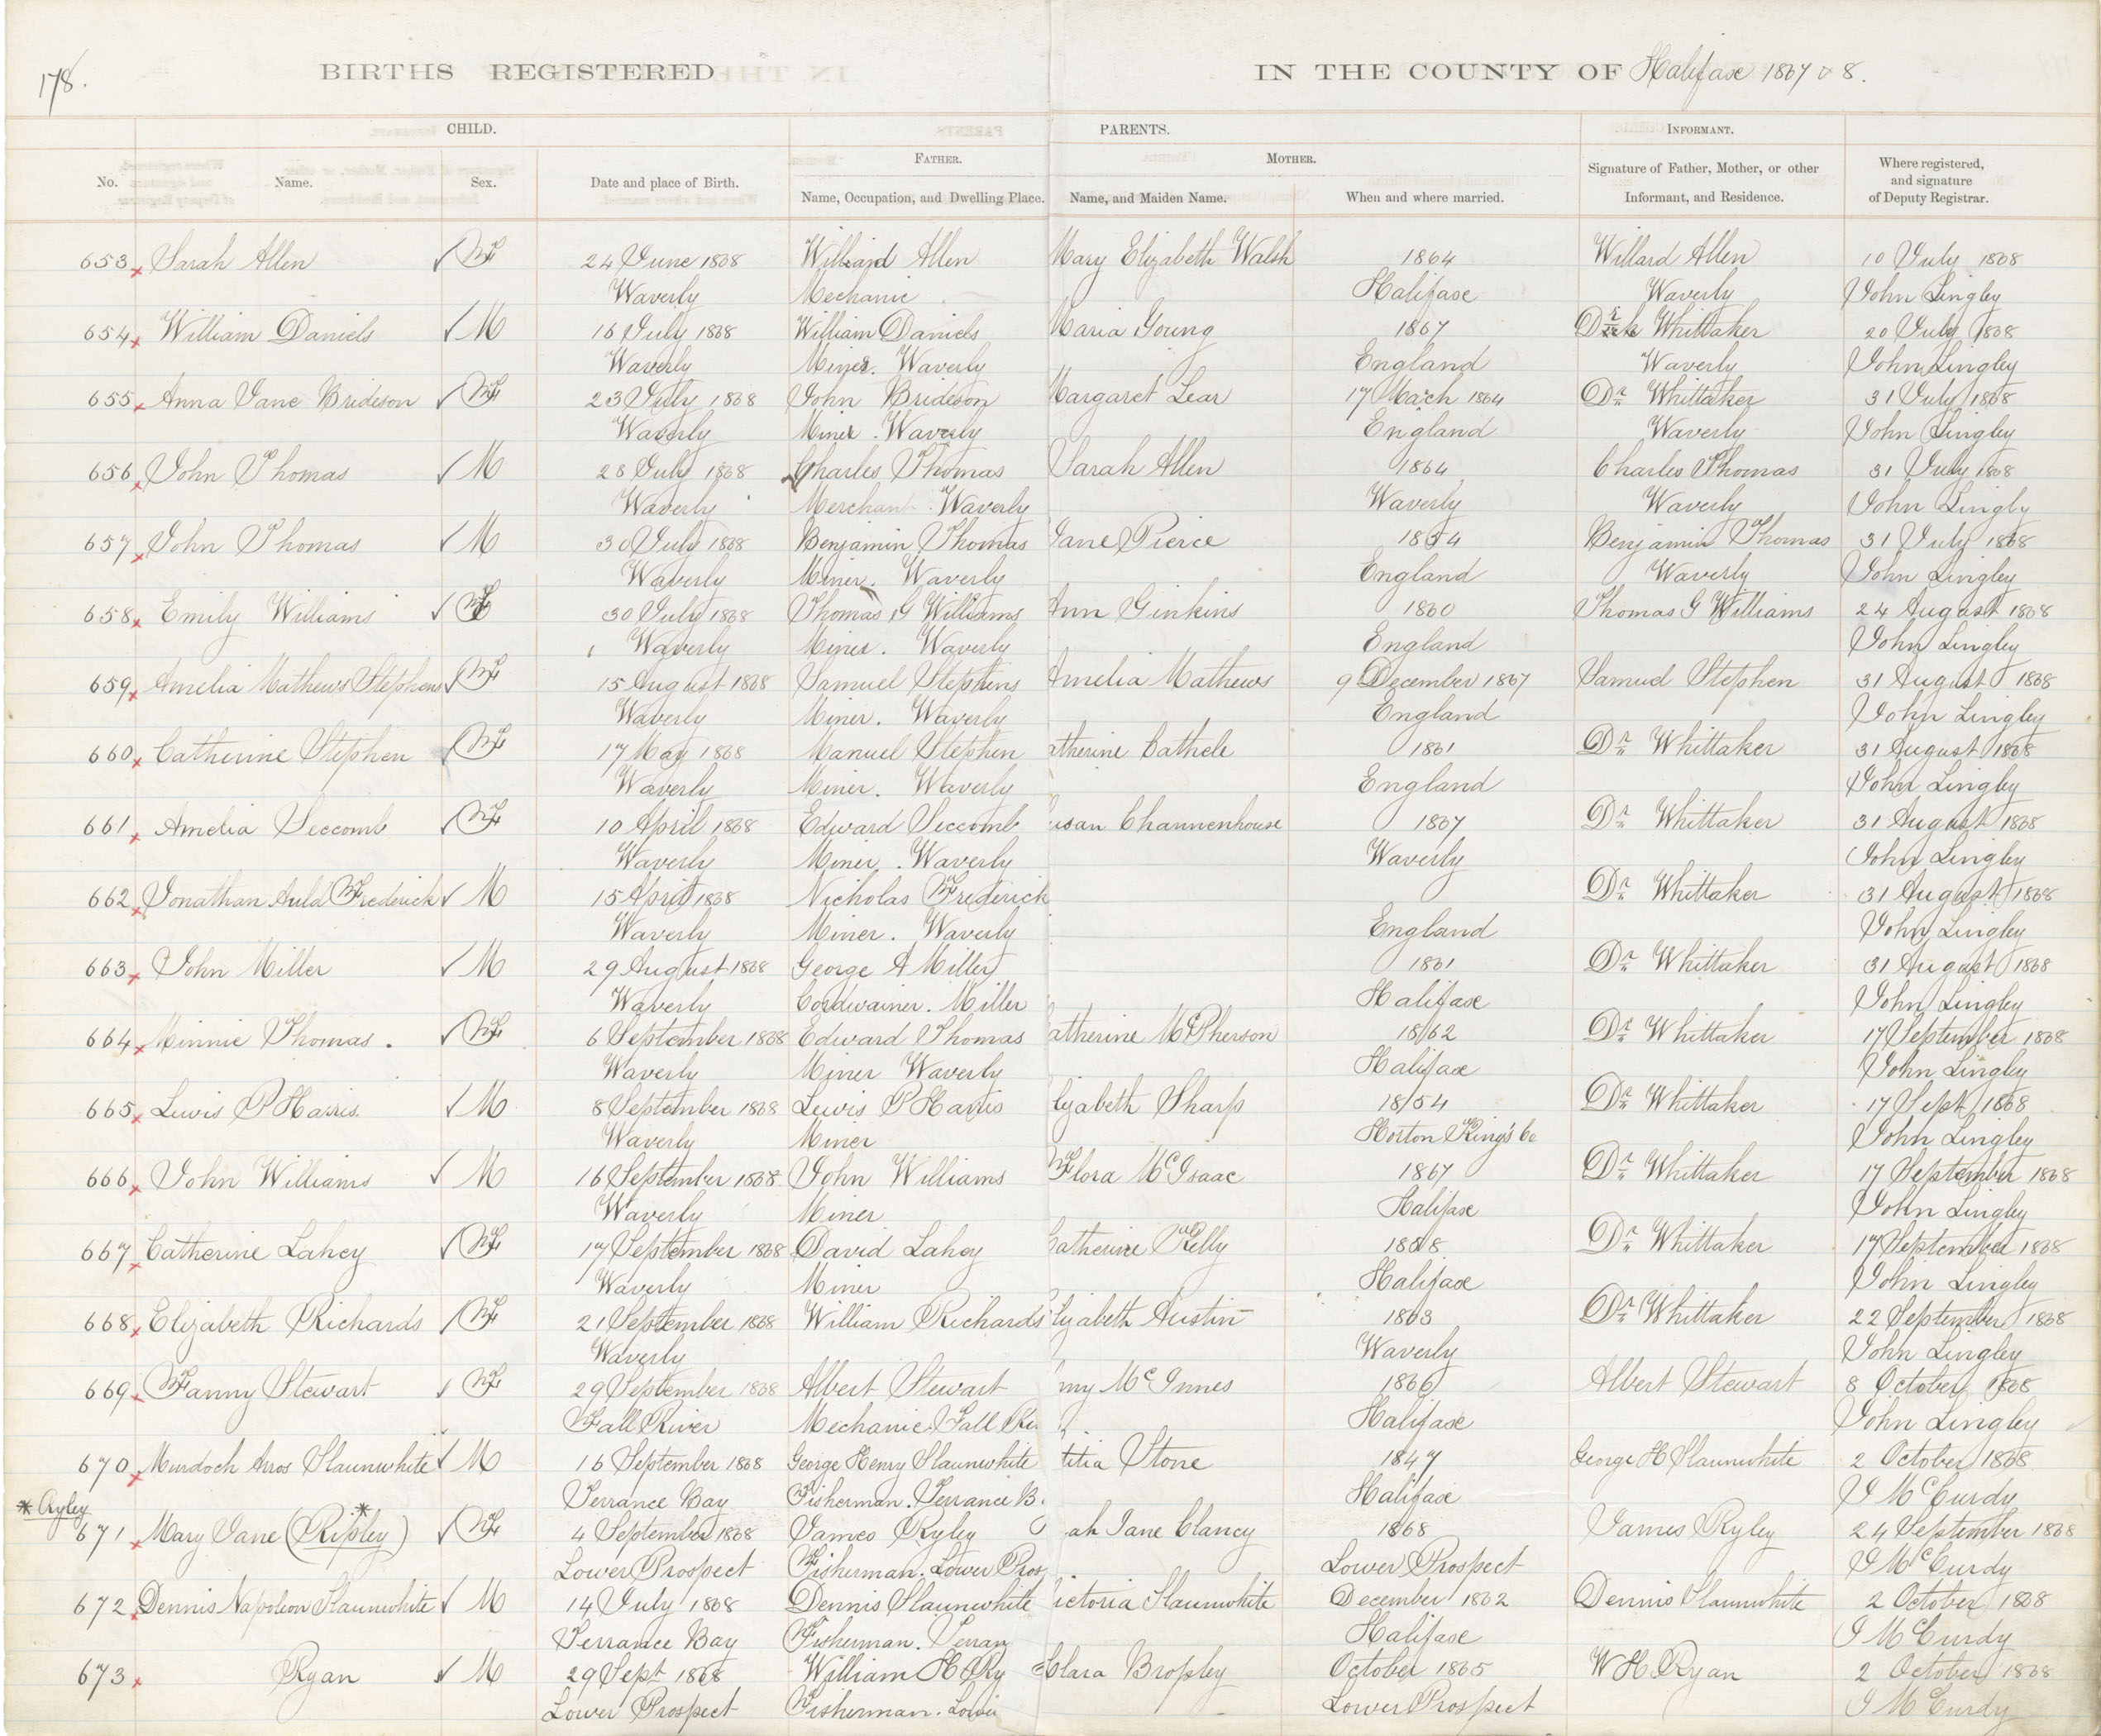 178.
BIRTHS REGISTERED IN THE COUNTY OF Halifax 1867 & 8.
CHILD. PARENTS. INFORMANT.
FATHER. MOTHER.
No. Name. Sex. Date and place of Birth. Name, Occupation, and Dwelling Place. Name, and Maiden Name. When and where married. Signature of Father, Mother, or other Informant, and Residence. Where registered, and signature of Deputy Registrar.
653 Sarah Allen F 24 June 1868 Willard Allen Mary Elizabeth Walsh 1864 Willard Allen 10 July 1868
Waverly Mechanic Halifax Waverly John Lingley
654 William Daniels M 16 July 1868 William Daniels Maria Young 1867 Whittaker 20 July 1868
Waverly Miner. Waverly England Waverly John Lingley
655 Anna Jane Brideson F 23 July 1868 John Brideson Margaret Lear 17 March 1864 Dr Whittaker 31 July 1868
Waverly Miner. Waverly England Waverly John Lingley
656 John Thomas M 28 July 1868 Charles Thomas Sarah Allen 1864 Charles Thomas 31 July 1868
Waverly Merchant. Waverly Waverly Waverly John Lingley
657 John Thomas M 30 July 1868 Benjamin Thomas Jane Pierce 1854 Benjamin Thomas 31 July 1868
Waverly Miner. Waverly England Waverly John Lingley
658 Emily Williams F 30 July 1868 Thomas G Williams Ann Ginkins 1860 Thomas G Williams 24 August 1868
Waverly Miner. Waverly England John Lingley
659 Amelia Mathews Stephens F 15 August 1868 Samuel Stephens Amelia Mathews 9 December 1867 Samuel Stephen 31 August 1868
Waverly Miner. Waverly England John Lingley
660 Catherine Stephen F 17 May 1868 Manuel Stephen atherine Cathele 1861 Dr Whittaker 31 August 1868
Waverly Miner. Waverly England John Lingley
661 Amelia Seccomb F 10 April 1868 Edward Seccomb usan Channenhouse 1867 Dr Whittaker 31 August 1868
Waverly Miner. Waverly Waverly John Lingley
662 Jonathan Auld Frederick M 15 April 1868 Nicholas Frederick Dr Whittaker 31 August 1868
Waverly Miner. Waverly England John Lingley
663 John Miller M 29 August 1868 George A Miller 1861 Dr Whittaker 31 August 1868
Waverly Cordwainer. Miller Halifax John Lingley
664 Minnie Thomas. F 6 September 1868 Edward Thomas atherine McPherson 1862 Dr Whittaker 17 September 1868
Waverly Miner Waverly Halifax John Lingley
665 Lewis P Harris M 8 September 1868 Lewis P Harris lizabeth Sharp 1854 Dr Whittaker 17 Sept 1868
Waverly Miner Horton King's Co John Lingley
666 John Williams M 16 September 1868 John Williams Flora McIsaac 1867 Dr Whittaker 17 September 1868
Waverly Miner Halifax John Lingley
667 Catherine Lahey F 17 September 1868 David Lahey Catherine Kelly 1868 Dr Whittaker 17 September 1868
Waverly Miner Halifax John Lingley
668 Elizabeth Richards F 21 September 1868 William Richards Elizabeth Austin 1863 Dr Whittaker 22 September 1868
Waverly Waverly John Lingley
669 Fanny Stewart F 29 September 1868 Albert Stewart my McInnes 1866 Albert Stewart 8 October 1868
Fall River Mechanic Fall Halifax John Lingley
670 Murdoch Slaunwhite M 16 September 1868 George Henry Slaunwhite titia Stone 1847 George H Slaunwhite 2 October 1868
Terrance Bay Fisherman. Terrance B. Halifax J McCurdy
* Ryley
671 Mary Jane (Ripley)* F 4 September 1868 James Ryley ah Jane Clancy 1868 James Ryley 24 September 1868
Lower Prospect Fisherman. Lower Pros Lower Prospect J McCurdy
672 Dennis Napoleon Slaunwhite M 14 July 1868 Dennis Slaunwhite ictoria Slaunwhite December 1862 Dennis Slaunwhite 2 October 1868
Terrance Bay Fisherman. Terran Halifax J McCurdy
673 Ryan M 29 Sept 1868 William H Ry Clara Brophy October 1865 W H. Ryan 2 October 1868
Lower Prospect Fisherman. Lower Lower Prospect J McCurdy